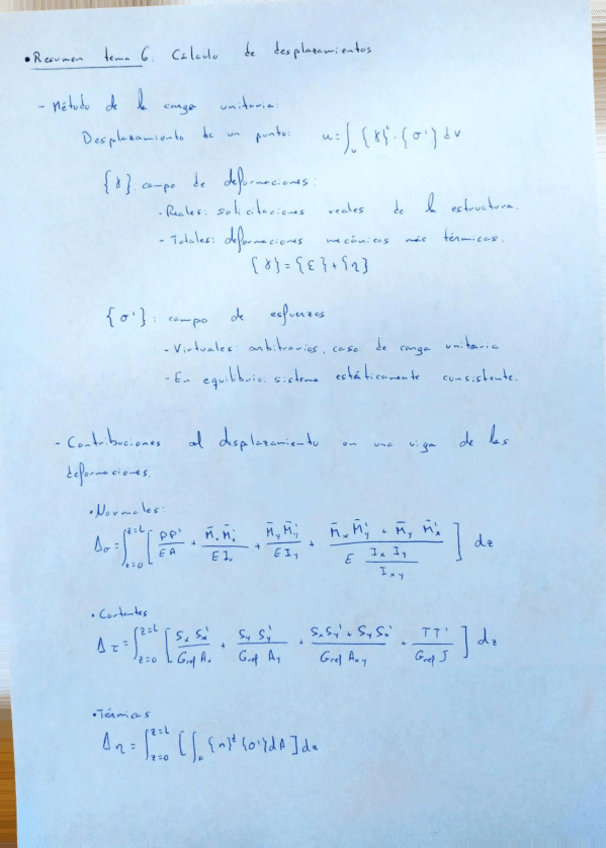 • Resumen tema 6. Cálculo de desplazamientos
- Método de la carga unitaria:
Desplazamiento de un punto: u = ∫_v {γ}^t · {σ'} dv
{γ}: campo de deformaciones:
- Reales: solicitaciones reales de la estructura.
- Totales: deformaciones mecánicas más térmicas.
{γ} = {ε} + {η}
{σ'}: campo de esfuerzos
- Virtuales: arbitrarios, caso de carga unitaria
- En equilibrio: sistema estáticamente consistente.
- Contribuciones al desplazamiento en una viga de las
deformaciones.
• Normales:
Δσ = ∫_{z=0}^{z=L} [ PP'/EA + M̄x M̄x'/EIx + M̄y M̄y'/EIy + (M̄x M̄y' + M̄y M̄x')/(E IxIy/Ixy) ] dz
• Cortantes
Δτ = ∫_{z=0}^{z=L} [ Sx Sx'/Gref Ax + Sy Sy'/Gref Ay + (Sx Sy' + Sy Sx')/Gref Axy + TT'/Gref J ] dz
• Térmicas
Δη = ∫_{z=0}^{z=L} [ ∫ {η}^t {σ'} dA ] dz